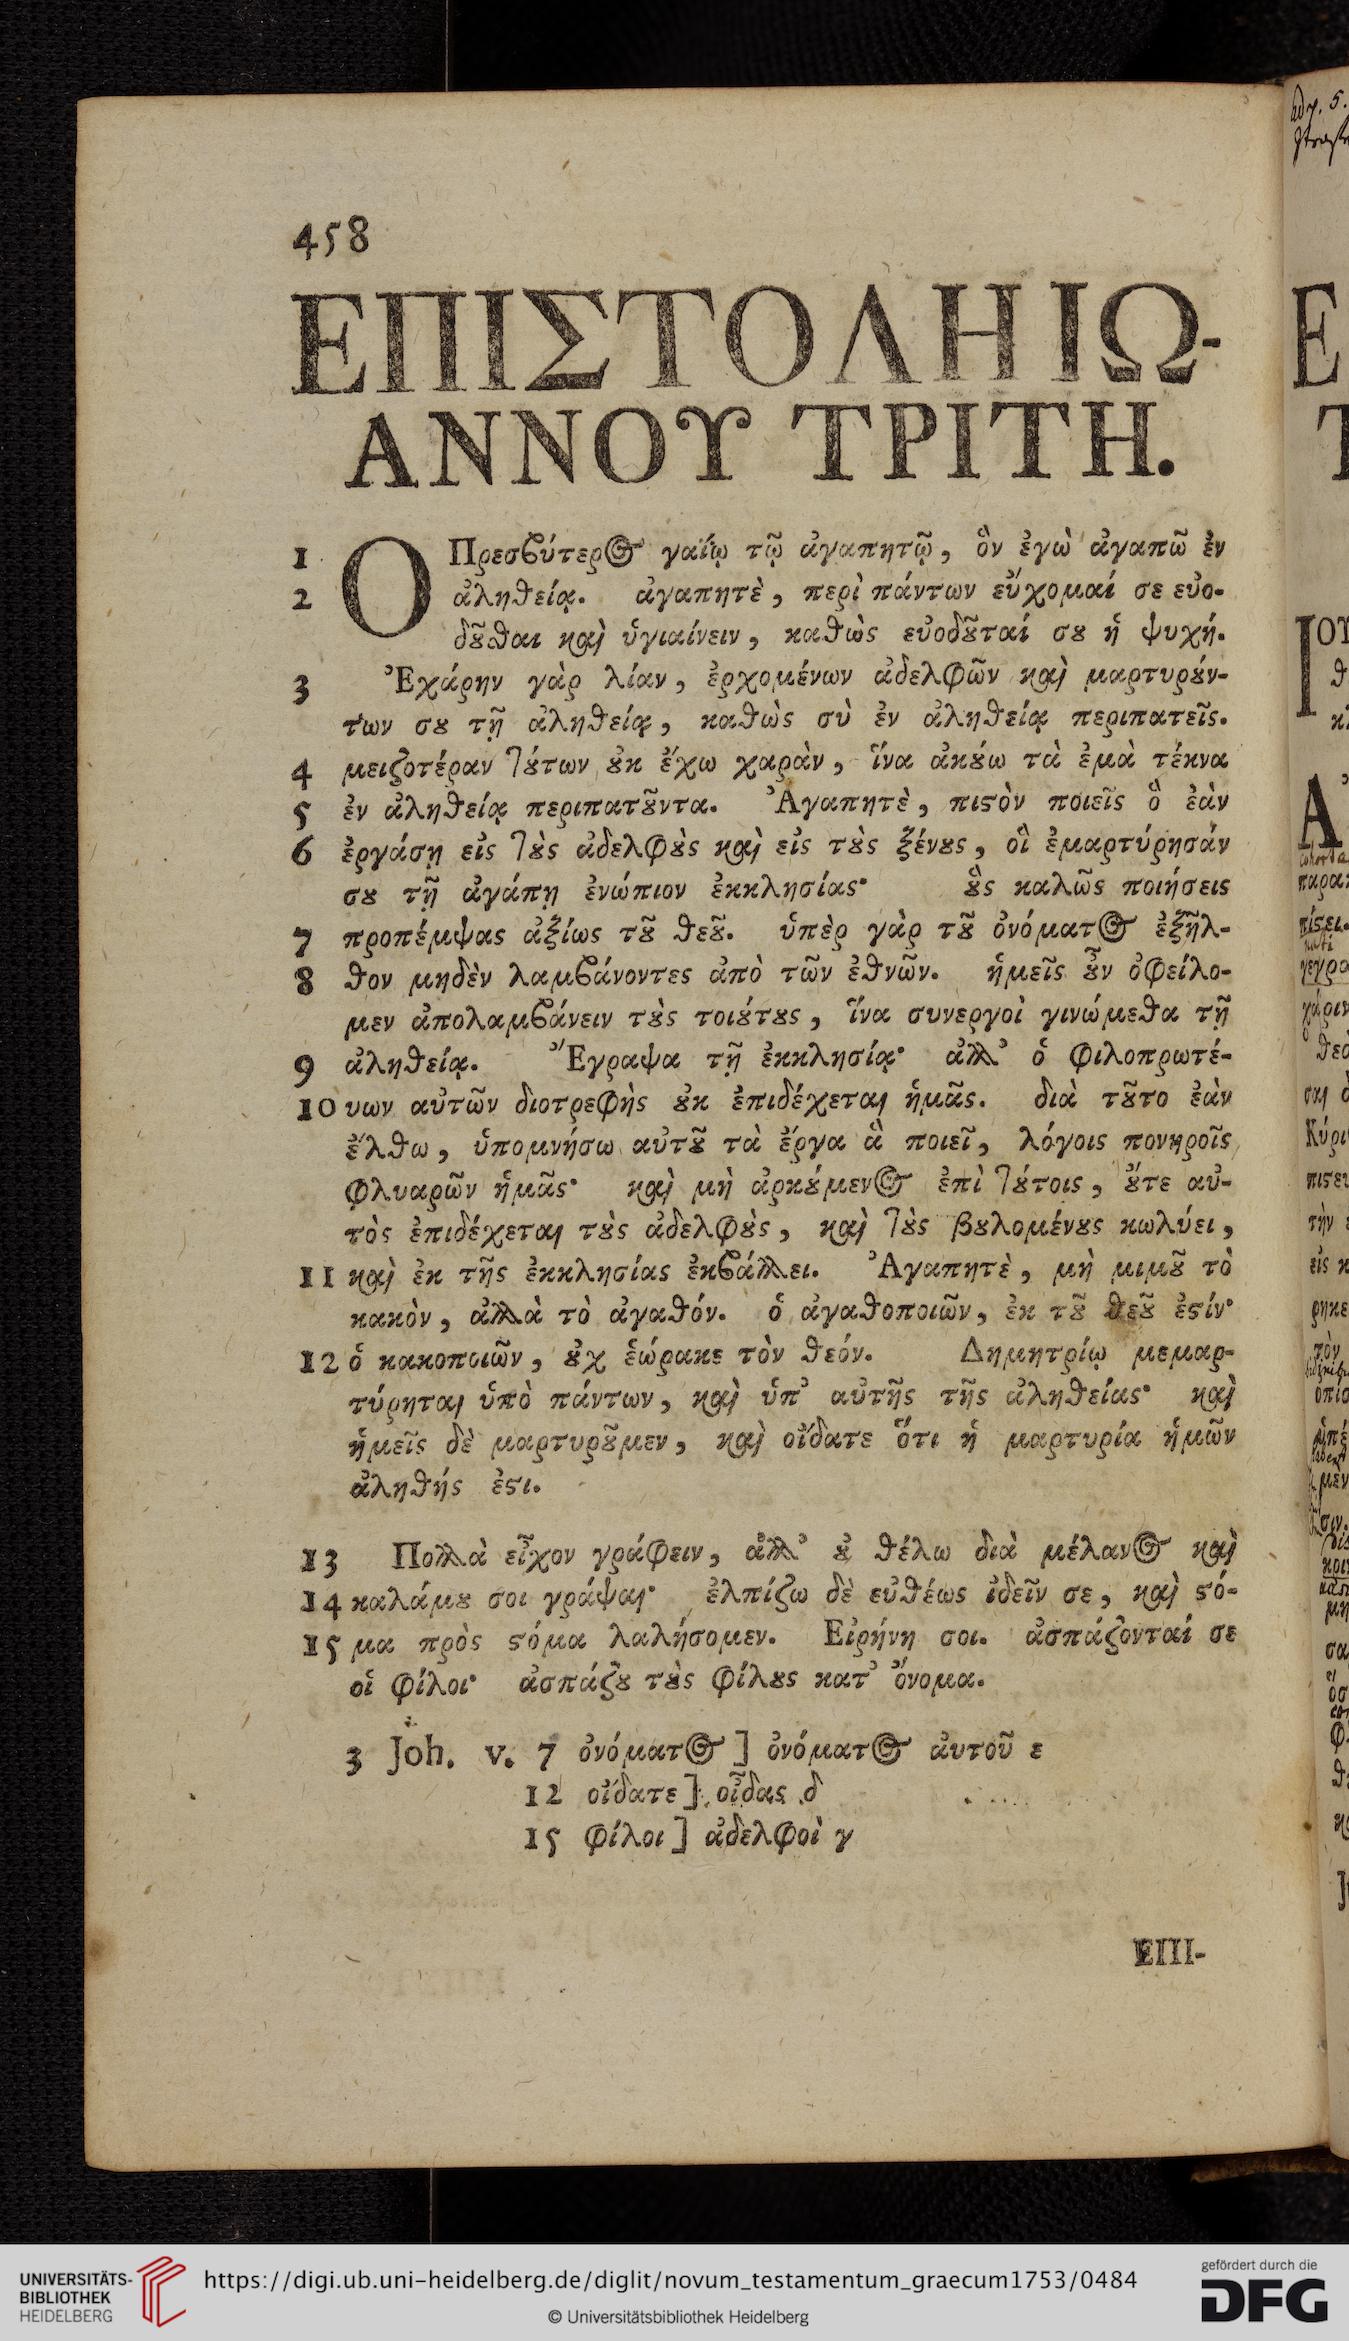 458
ΕΠΙΣΤΟΛΗ ΙΩ-
ΑΝΝΟΥ ΤΡΙΤΗ.
1 Ο Πρεσϐύτερος γαΐῳ τῷ ἀγαπητῷ, ὃν ἐγὼ ἀγαπῶ ἐν
2 ἀληθείᾳ. ἀγαπητὲ, περὶ πάντων εὔχομαί σε εὐο-
δȣ͂σθαι καὶ ὑγιαίνειν, καθὼς εὐοδȣ͂ταί σȣ ἡ ψυχή.
3 Ἐχάρην γὰρ λίαν, ἐρχομένων ἀδελφῶν καὶ μαρτυρȣ́ν-
των σȣ τῇ ἀληθείᾳ, καθὼς σὺ ἐν ἀληθείᾳ περιπατεῖς.
4 μειζοτέραν τȣ́των ȣ̓κ ἔχω χαρὰν, ἵνα ἀκȣ́ω τὰ ἐμὰ τέκνα
5 ἐν ἀληθείᾳ περιπατȣ͂ντα. Ἀγαπητὲ, πιϛὸν ποιεῖς ὃ ἐὰν
6 ἐργάσῃ εἰς τȣ̀ς ἀδελφȣ̀ς καὶ εἰς τȣ̀ς ξένȣς, οἳ ἐμαρτύρησάν
σȣ τῇ ἀγάπῃ ἐνώπιον ἐκκλησίας· ȣ̓̀ς καλῶς ποιήσεις
7 προπέμψας ἀξίως τȣ͂ θεȣ͂. ὑπὲρ γὰρ τȣ͂ ὀνόματος ἐξῆλ-
8 θον μηδὲν λαμϐάνοντες ἀπὸ τῶν ἐθνῶν. ἡμεῖς ȣ̓͂ν ὀφείλο-
μεν ἀπολαμϐάνειν τȣ̀ς τοιȣ́τȣς, ἵνα συνεργοὶ γινώμεθα τῇ
9 ἀληθείᾳ. Ἔγραψα τῇ ἐκκλησίᾳ· ἀλλ᾽ ὁ φιλοπρωτέ-
10 υων αὐτῶν διοτρεφὴς ȣ̓κ ἐπιδέχεται ἡμᾶς. διὰ τȣ͂το ἐὰν
ἔλθω, ὑπομνήσω αὐτȣ͂ τὰ ἔργα ἃ ποιεῖ, λόγοις πονηροῖς
φλυαρῶν ἡμᾶς· καὶ μὴ ἀρκȣ́μενος ἐπὶ τȣ́τοις, ȣ̓́τε αὐ-
τὸς ἐπιδέχεται τȣ̀ς ἀδελφȣ̀ς, καὶ τȣ̀ς βȣλομένȣς κωλύει,
11 καὶ ἐκ τῆς ἐκκλησίας ἐκϐάλλει. Ἀγαπητὲ, μὴ μιμȣ͂ τὸ
κακὸν, ἀλλὰ τὸ ἀγαθόν. ὁ ἀγαθοποιῶν, ἐκ τȣ͂ θεȣ͂ ἐϛίν·
12 ὁ κακοποιῶν, ȣ̓χ ἑώρακε τὸν θεόν. Δημητρίῳ μεμαρ-
τύρηται ὑπὸ πάντων, καὶ ὑπ᾽ αὐτῆς τῆς ἀληθείας· καὶ
ἡμεῖς δὲ μαρτυρȣ͂μεν, καὶ οἴδατε ὅτι ἡ μαρτυρία ἡμῶν
ἀληθής ἐϛι.
13 Πολλὰ εἶχον γράφειν, ἀλλ᾽ ȣ̓ θέλω διὰ μέλανος καὶ
14 καλάμȣ σοι γράψαι· ἐλπίζω δὲ εὐθέως ἰδεῖν σε, καὶ ϛό-
15 μα πρὸς ϛόμα λαλήσομεν. Εἰρήνη σοι. ἀσπάζονταί σε
οἱ φίλοι· ἀσπάζȣ τȣ̀ς φίλȣς κατ᾽ ὄνομα.
3 Joh. v. 7 ὀνόματος ] ὀνόματος ἀυτοῦ ε
12 οἴδατε ] οἶδας δ
15 φίλοι ] ἀδελφοὶ γ
ΕΠΙ-
UNIVERSITÄTS-
BIBLIOTHEK
HEIDELBERG
https://digi.ub.uni-heidelberg.de/diglit/novum_testamentum_graecum1753/0484
© Universitätsbibliothek Heidelberg
gefördert durch die
DFG